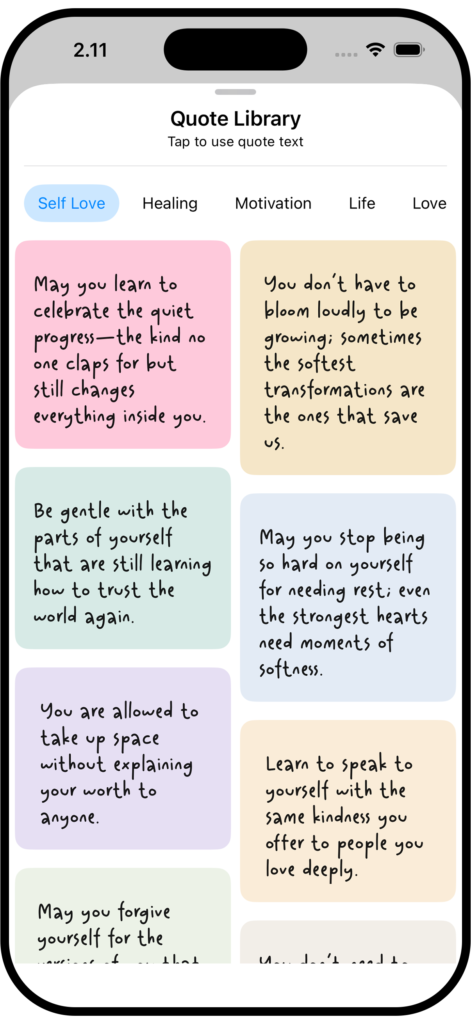 2.11
Quote Library
Tap to use quote text
Self Love
Healing
Motivation
Life
Love
May you learn to
celebrate the quiet
progress—the kind no
one claps for but
still changes
everything inside you.
You don't have to
bloom loudly to be
growing; sometimes
the softest
transformations are
the ones that save
us.
Be gentle with the
parts of yourself
that are still learning
how to trust the
world again.
May you stop being
so hard on yourself
for needing rest; even
the strongest hearts
need moments of
softness.
You are allowed to
take up space
without explaining
your worth to
anyone.
Learn to speak to
yourself with the
same kindness you
offer to people you
love deeply.
May you forgive
yourself for the
You don't need to